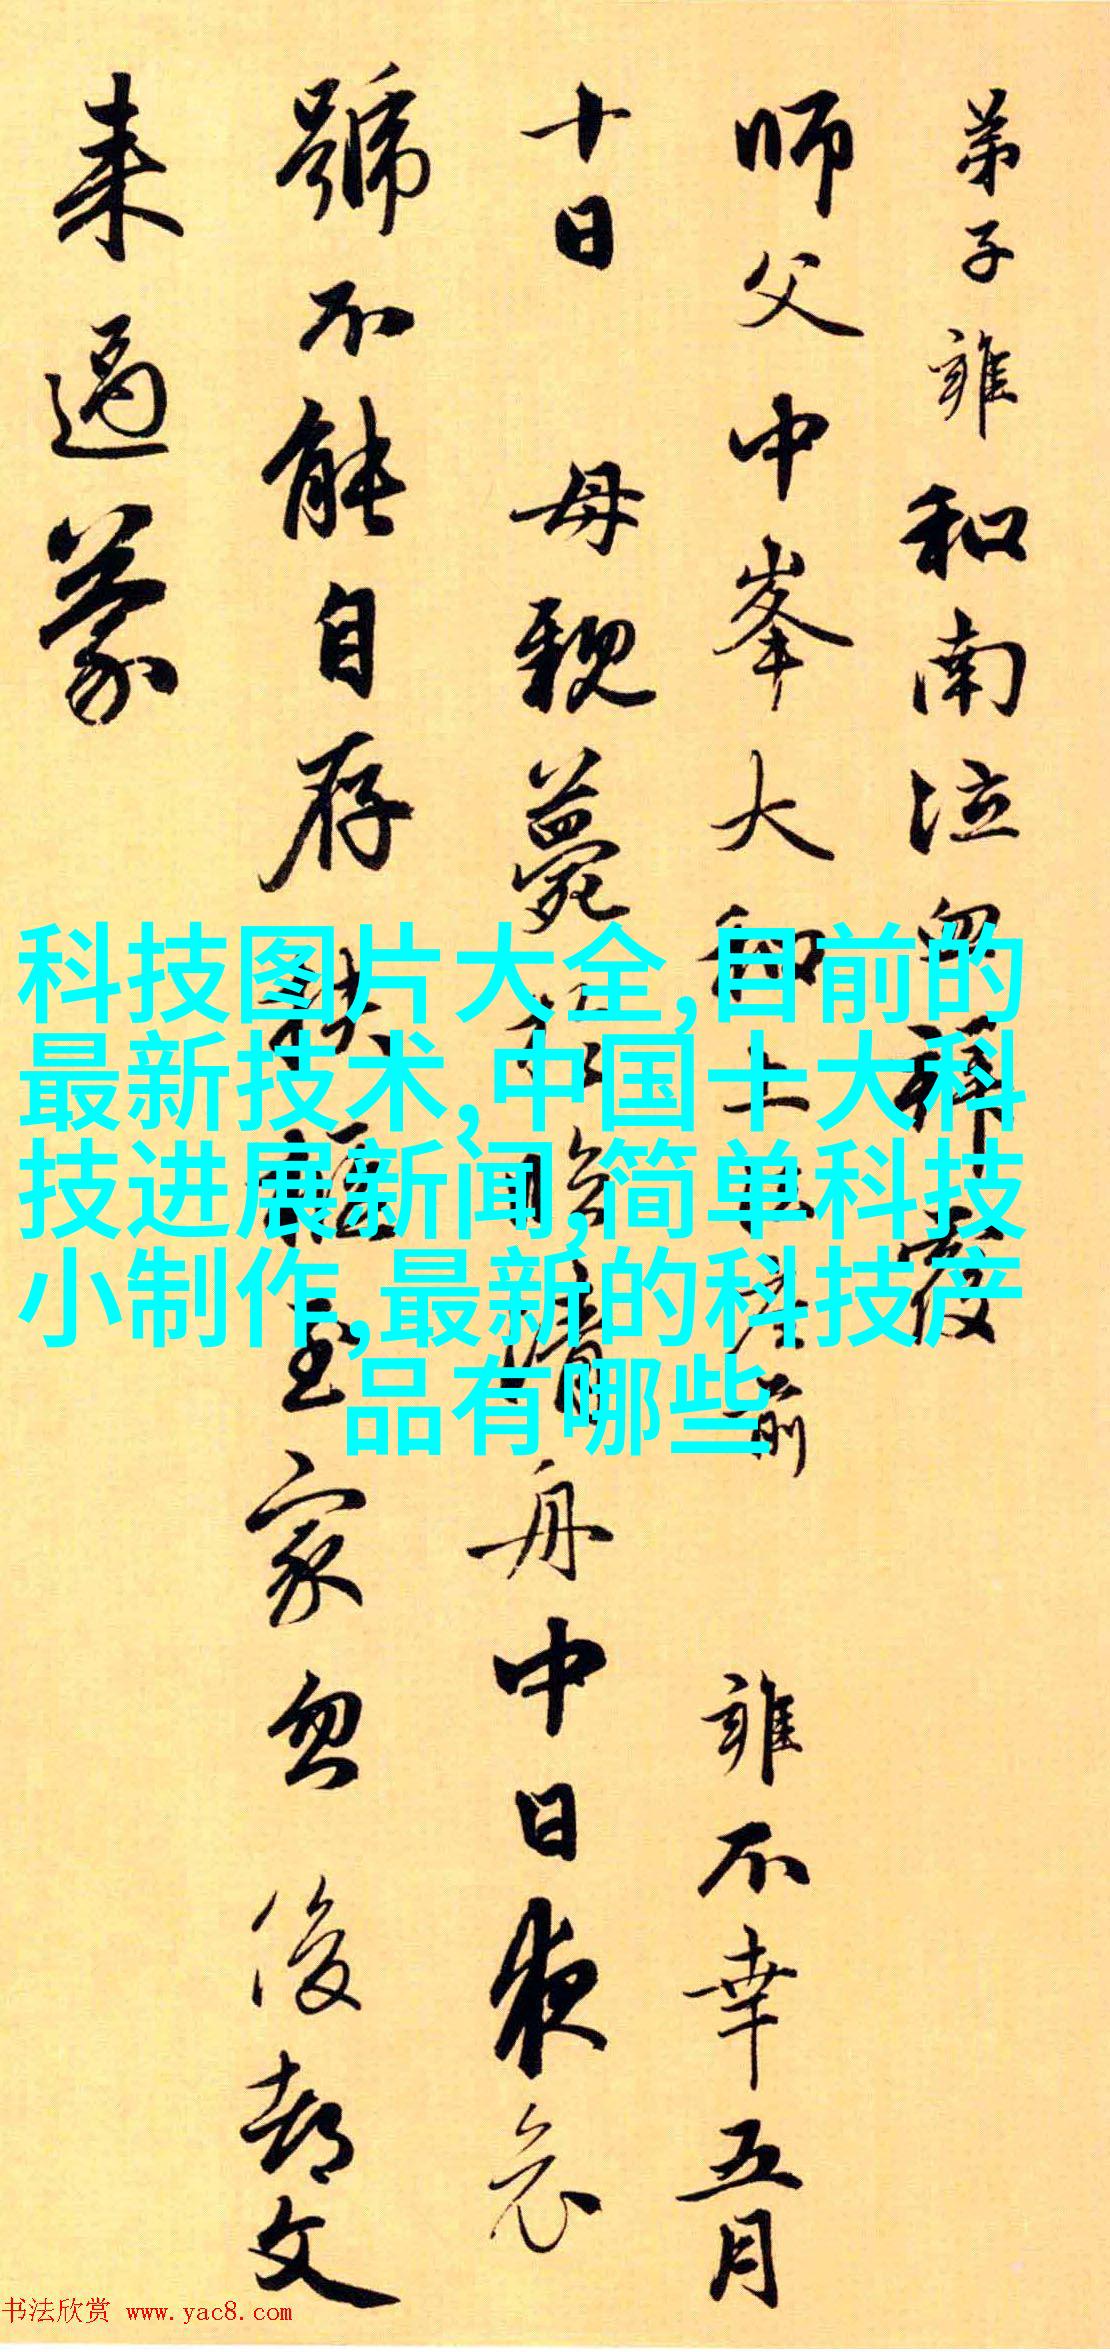 弟子雍和南泣血拜覆
師父中峯大和上尊者前 雍不幸五月
十日 母親薨 舟中日夜哀
號不能自存 扶柩至家 忽 後都文
来過蒙
科技图片大全,目前的
最新技术,中国十大科
技进展新闻,简单科技
小制作,最新的科技产
品有哪些
书法欣赏 www.yac8.com